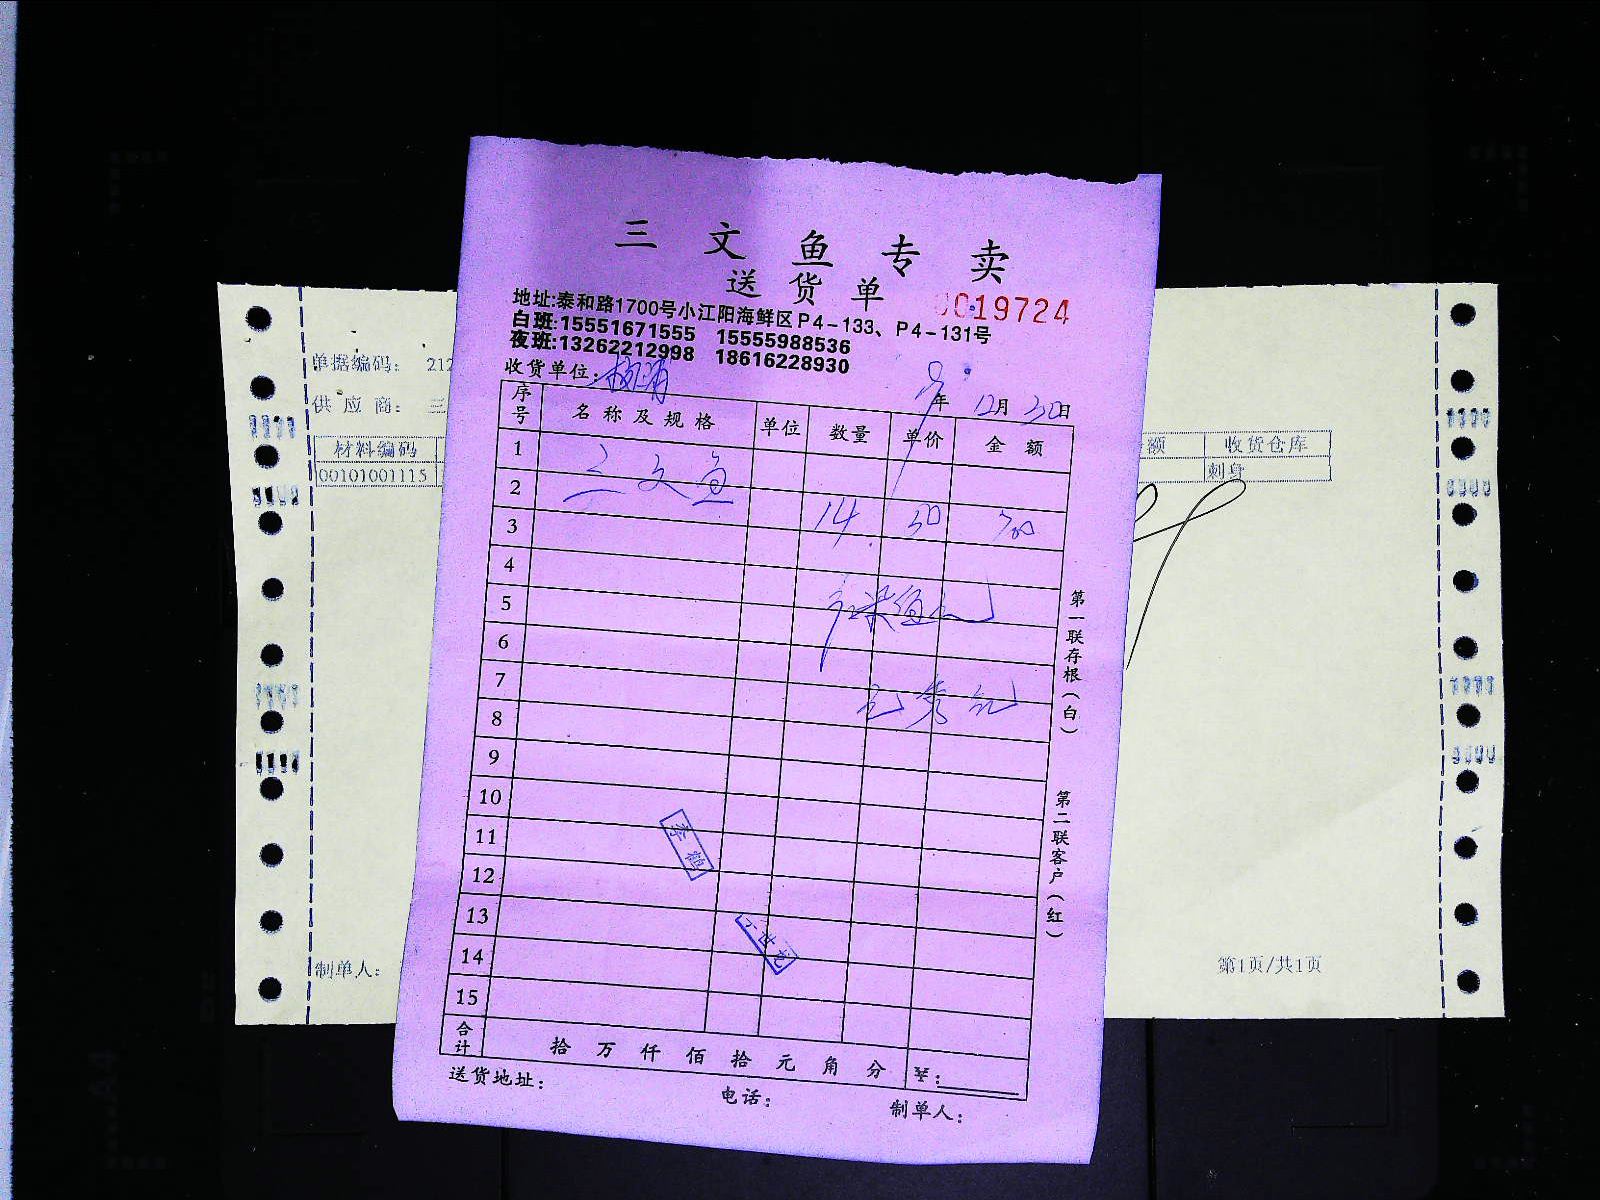 三文鱼专卖
送货单 0019724
地址:泰和路1700号小江阳海鲜区P4-133、P4-131号
白班:15551671555 15555988536
夜班:13262212998 18616228930
收货单位: 年 12月 30日
序号 名称及规格 单位 数量 单价 金额
1
2 三文鱼 14 50 700
3
4
5
6
7
8
9
10
11
12
13
14
15
合计 拾 万 仟 佰 拾 元 角 分 ¥:
送货地址: 电话: 制单人:
第一联存根(白)
第二联客户(红)
李鹤
单据编码: 212
供应商: 三
材料编码 额 收货仓库
00101001115 刺身
制单人: 第1页/共1页